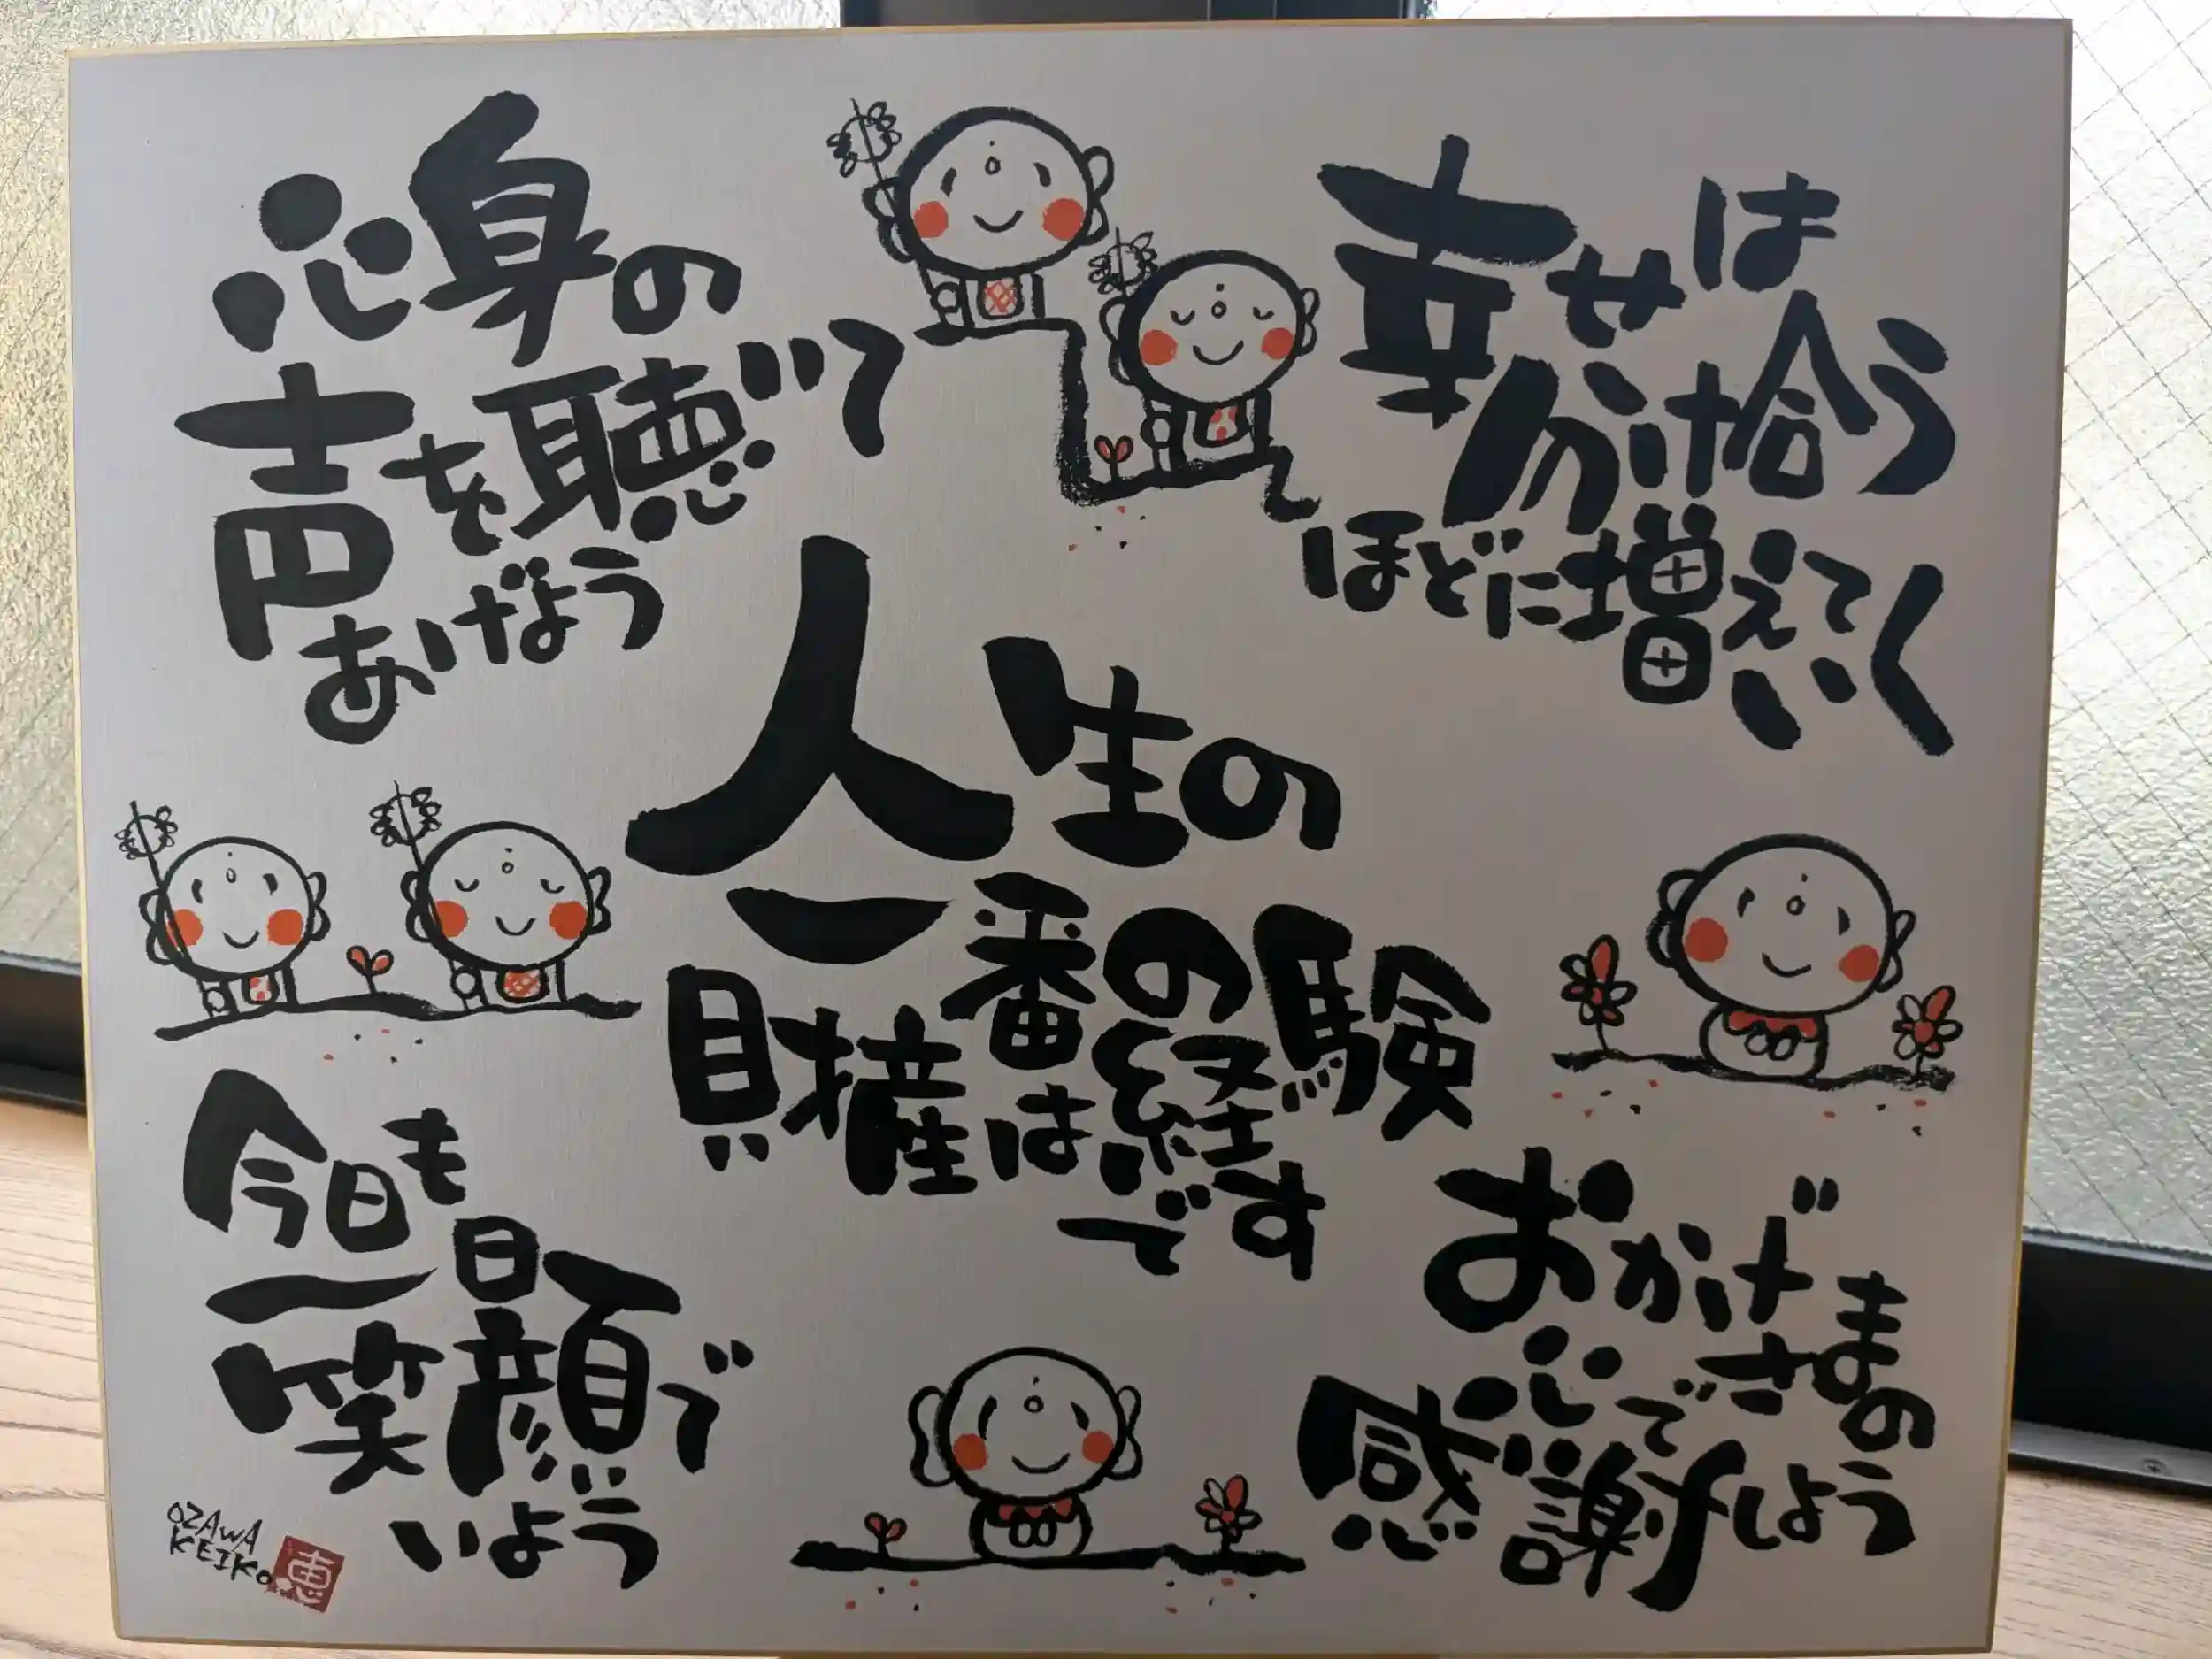 心身の
声を聴いて
あげよう
幸せは
かけ拾う
ほどに増えていく
人生の
一番の
財産は経験
です
今日も
一日
笑顔で
いよう
おかげさまの
心で
感謝しよう
OZAWA
KEIKO
恵